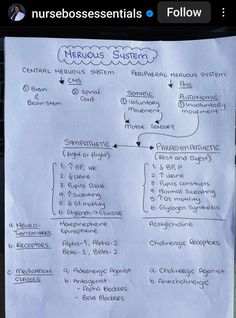 nursebossessentials
Follow
NERVOUS SYSTEM
CENTRAL NERVOUS SYSTEM
PERIPHERAL NERVOUS SYSTEM
CNS
PNS
① Brain & Brain Stem
② Spinal Cord
SOMATIC
① Voluntary movement
AUTONOMIC
① Involuntary movement
MOTOR SENSORY
SYMPATHETIC
(Fight or flight)
1. ↑ BP, HR
2. ↓ Urine
3. Pupils Dilate
4. ↑ Sweating
5. ↓ GI motility
6. Glycogen → Glucose
PARASYMPATHETIC
(Rest and Digest)
1. ↓ BP, P
2. ↑ Urine
3. Pupils constricts
4. Normal sweating
5. ↑ GI motility
6. Glycogen Synthesis
a. NEURO-TRANSMITTERS
Norepinephrine
Epinephrine
Acetylcholine
b. RECEPTORS
Alpha-1, Alpha-2
Beta-1, Beta-2
Cholinergic Receptors
c. MEDICATION CLASSES
a. Adrenergic Agonist
b. Antagonist
- Alpha Blockers
- Beta Blockers
a. Cholinergic Agonist
b. Anticholinergic